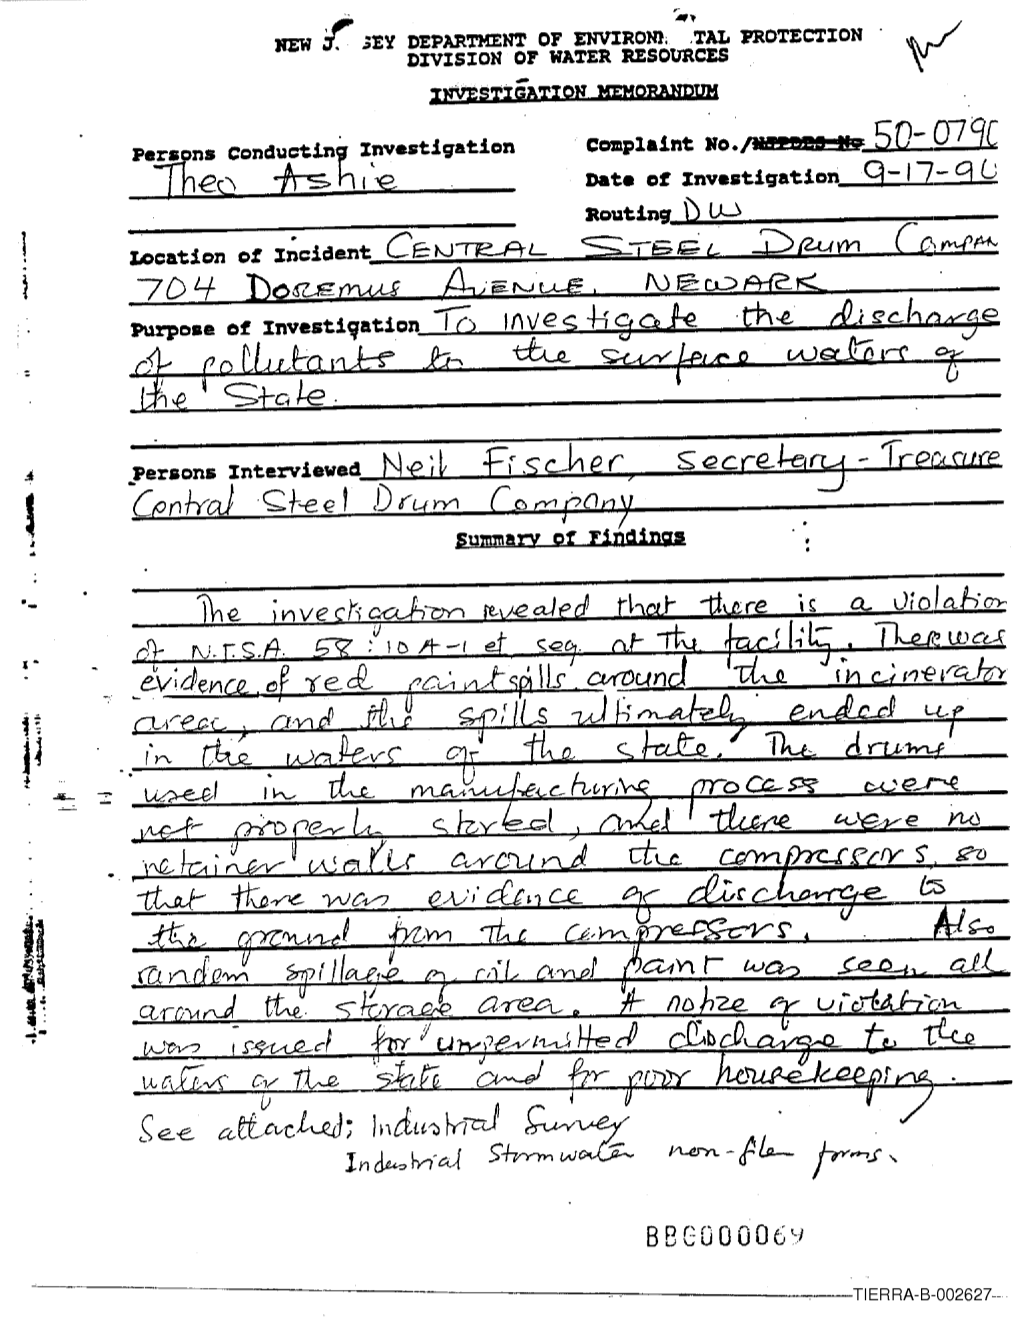 NEW J. SEY DEPARTMENT OF ENVIRONM. TAL PROTECTION
DIVISION OF WATER RESOURCES
INVESTIGATION MEMORANDUM
Persons Conducting Investigation
Theo Ashie
Complaint No./NJPDES No 50-0790
Date of Investigation 9-17-90
Routing DW
Location of Incident CENTRAL STEEL DRUM COMPAN
704 DOREMUS AVENUE, NEWARK
Purpose of Investigation To investigate the discharge
of pollutants to the surface waters of
the State.
Persons Interviewed Neil Fischer, Secretary-Treasure
Central Steel Drum Company
Summary of Findings
The investigation revealed that there is a violation
of N.J.S.A. 58:10A-1 et seq. at the facility. There was
evidence of red paint spills around the incinerator
area, and the spills ultimately ended up
in the waters of the state. The drums
used in the manufacturing process were
not properly stored, and there were no
retainer walls around the compressors, so
that there was evidence of discharge to
the ground from the compressors. Also
random spillage of oil and paint was seen all
around the storage area. A notize of violation
was issued for unpermitted discharge to the
waters of the state and for poor housekeeping.
See attached; Industrial Survey
Industrial Stormwater non-filer forms.
BBG000069
TIERRA-B-002627